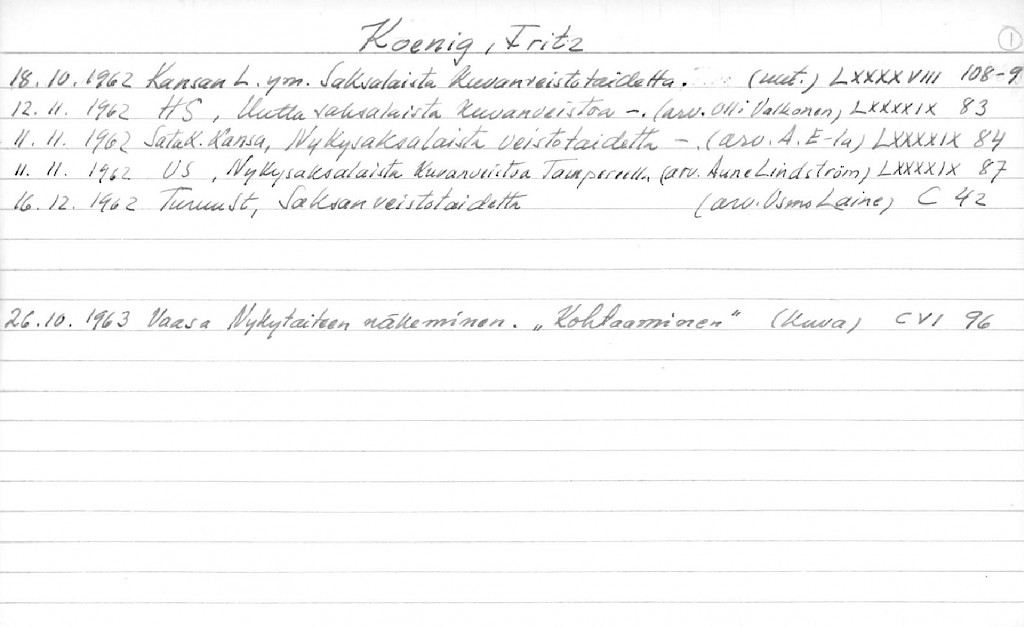 Koenig, Fritz
1
18.10.1962 Kansan L. ym. Saksalaista kuvanveistotaidetta. (uut.) LXXXXVIII 108-9
12.11.1962 HS, Uutta saksalaista kuvanveistoa -. (arv. Olli Valkonen) LXXXXIX 83
11.11.1962 Satak. Kansa, Nykysaksalaista veistotaidetta -. (arv. A. E-la) LXXXXIX 84
11.11.1962 US, Nykysaksalaista kuvanveistoa Tampereella (arv. Aune Lindström) LXXXXIX 87
16.12.1962 TurunSt, Saksan veistotaidetta (arv. Osmo Laine) C 42
26.10.1963 Vaasa Nykytaiteen näkeminen. „Kohtaaminen" (kuva) CVI 96